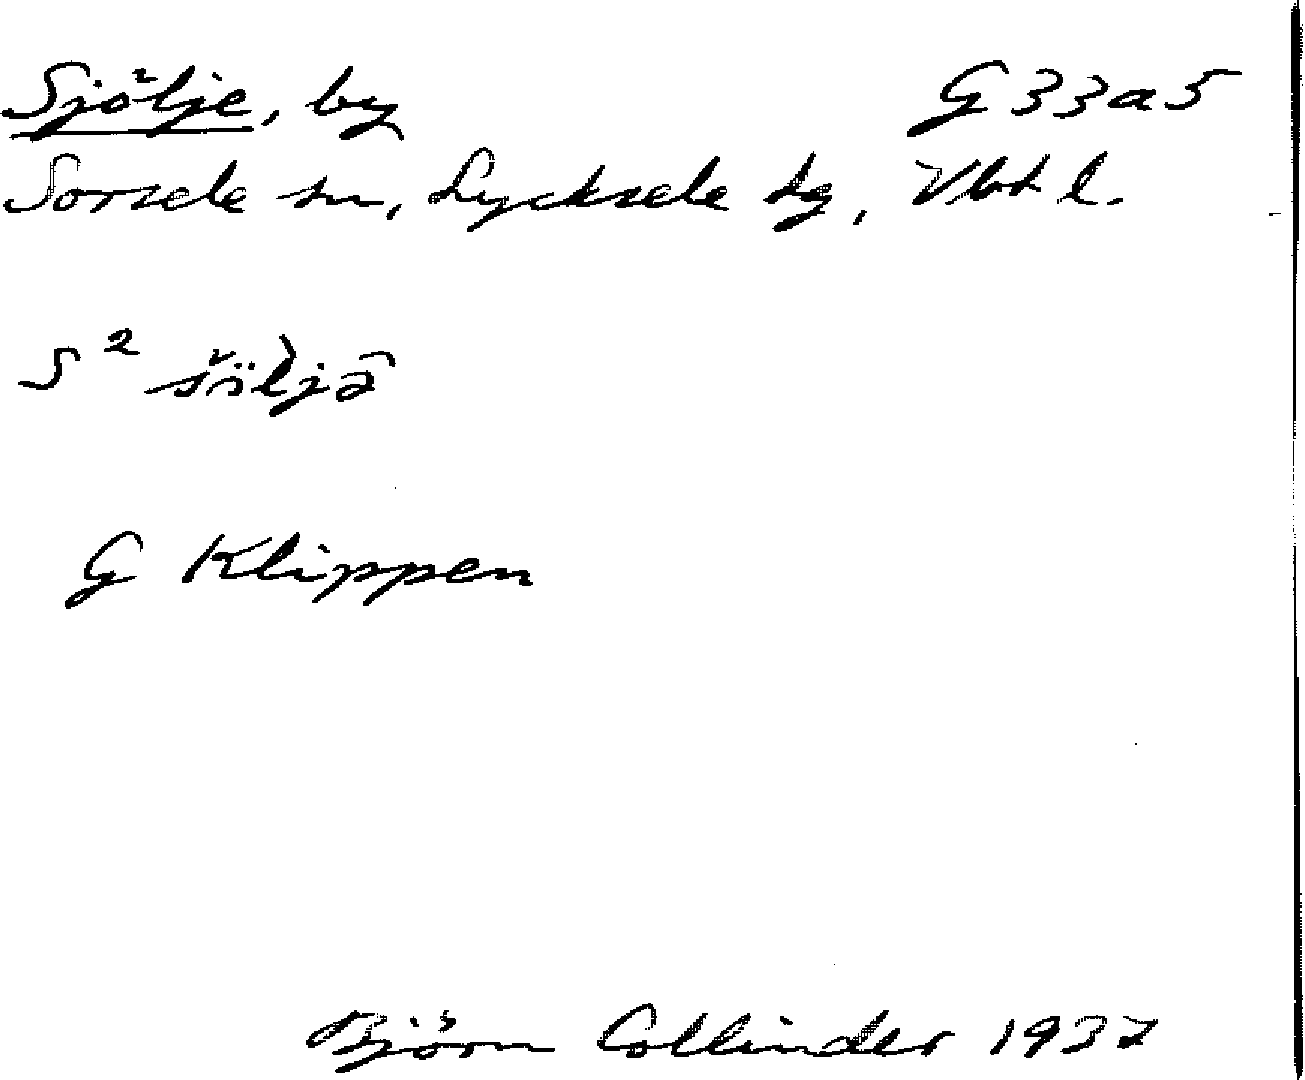 Sjölje, by G 33 a 5
Sorsele sn, Lycksele lg, Vbt l.
S² šöljə̄
G Klippen
Björn Collinder 1937